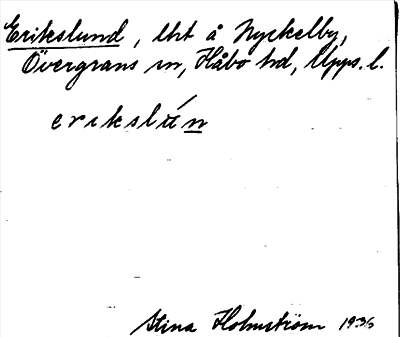 Erikslund, lht å Nyckelby,
Övergrans sn, Håbo hd, Upps. l.
erikslún
Stina Holmström 1936